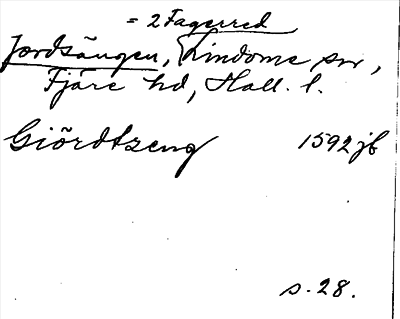 = 2 Fagerred
Jordsängen, Lindome sn,
Fjäre hd, Hall. l.
Giördtzeng 1592 jb
s. 28.